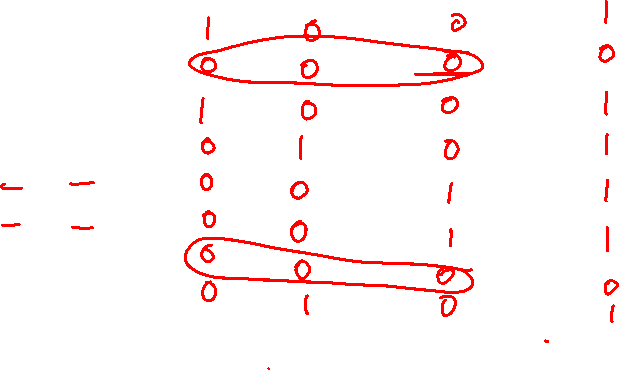 1 0 0 1
0 0 0 0
1 0 0 1
0 1 0 1
0 0 1 1
0 0 1 1
0 0 0 0
0 1 0 1